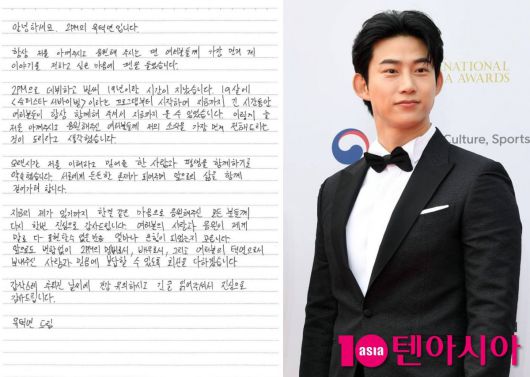 안녕하세요. 2PM의 옥택연입니다.
항상 저를 아껴주시고 응원해 주시는 여러분들께 가장 먼저 제
이야기를 전하고 싶은 마음에 펜을 들었습니다.
2PM으로 데뷔하고 벌써 시간이 지났습니다. 19살에
<슈퍼스타 서바이벌>이라는 프로그램부터 시작하여 지금까지 긴 시간동안
여러분들이 항상 함께해 주셔서 지금까지 올 수 있었습니다. 이렇게 늘
저를 아껴주시고 응원해주신 여러분들께 저의 소식을 가장 먼저 전해드리는
것이 도리라고 생각했습니다.
오랜시간 저를 이해하고 믿어준 한 사람과 평생을 함께하기로
약속했습니다. 서로에게 든든한 존재가 되어주며 앞으로의 삶을 함께
걸어가려 합니다.
지금의 제가 있기까지 한결 같은 마음으로 응원해주신 모든 분들께
다시 한번 진심으로 감사드립니다. 여러분의 사랑과 응원이 제게
말로 다 표현할 수 없을만큼 얼마나 큰 힘이 되었는지 모릅니다.
앞으로도 변함없이 2PM의 멤버로서, 배우로서, 그리고 여러분의 택연으로서
보내주신 사랑과 믿음에 보답할 수 있도록 최선을 다하겠습니다.
감사드리며
건강 유의하시고 긴 글 읽어주셔서 진심으로
감사드립니다.
옥택연 드림
NATIONAL
A AWARDS
Culture, Sports
10 asia 텐아시아